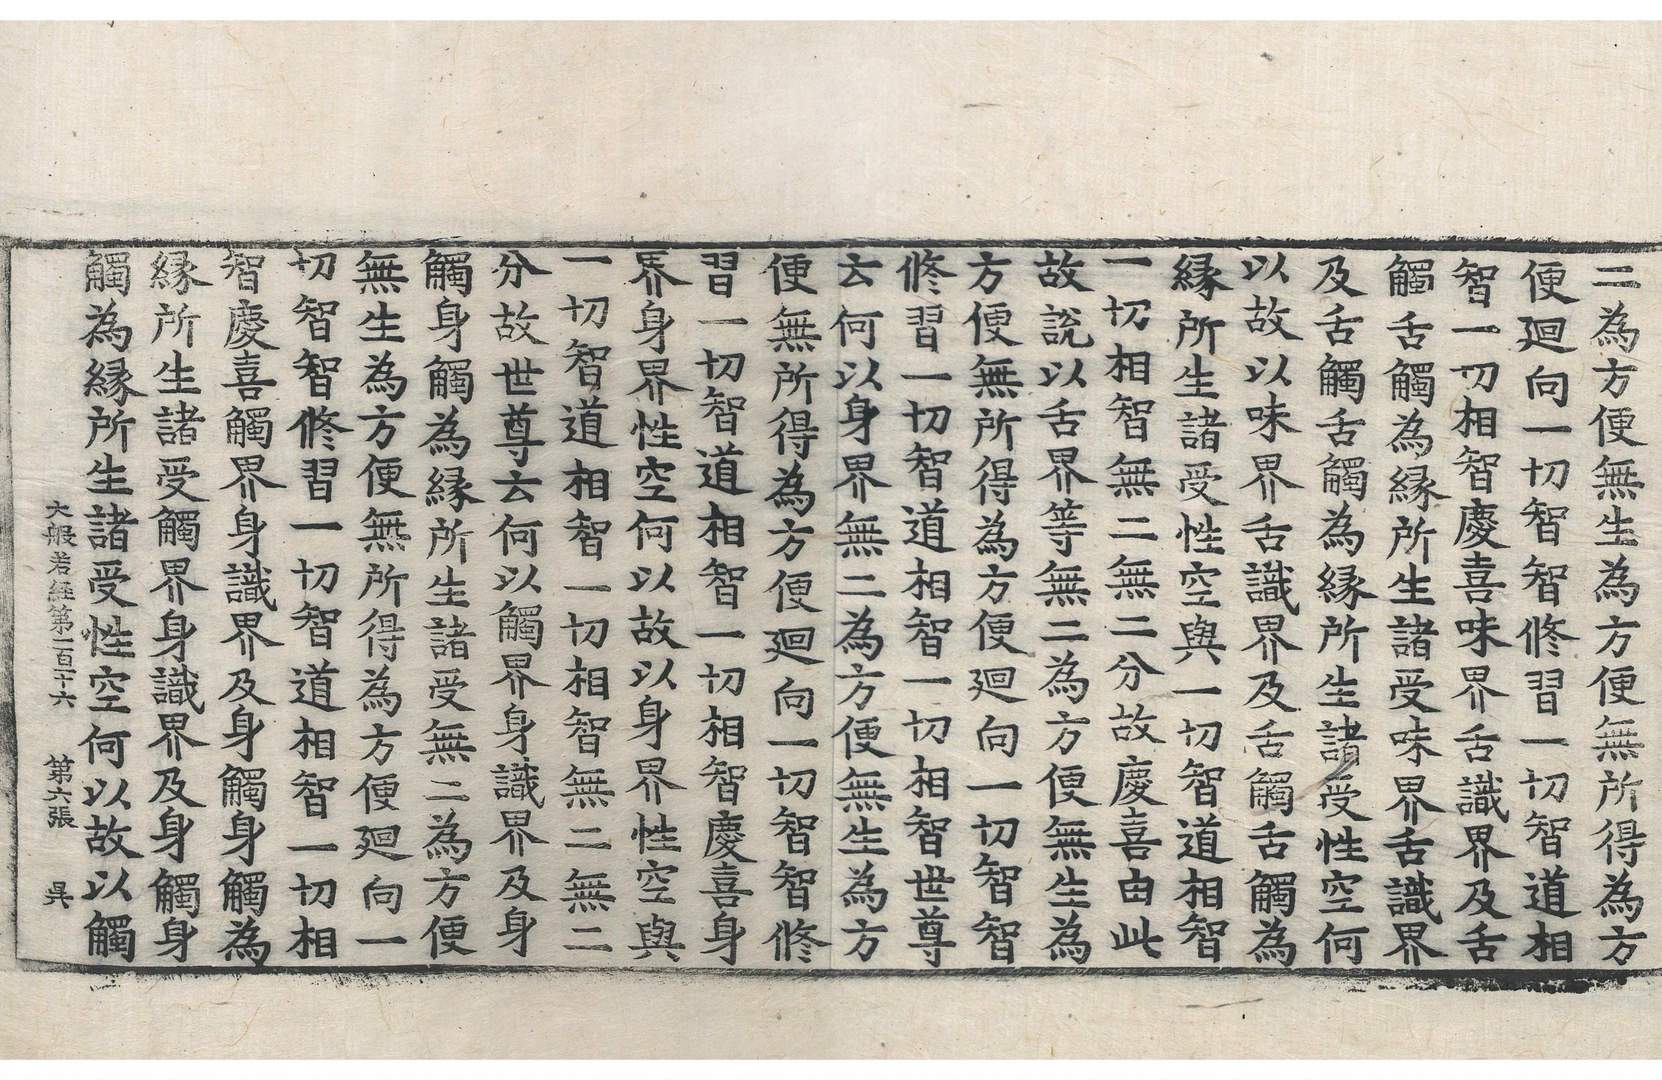 二為方便無生為方便無所得為方
便廻向一切智智修習一切智道相
智一切相智慶喜味界舌識界及舌
觸舌觸為縁所生諸受味界舌識界
及舌觸舌觸為縁所生諸受性空何
以故以味界舌識界及舌觸舌觸為
縁所生諸受性空與一切智道相智
一切相智無二無二分故慶喜由此
故說以舌界等無二為方便無生為
方便無所得為方便廻向一切智智
修習一切智道相智一切相智世尊
云何以身界無二為方便無生為方
便無所得為方便廻向一切智智修
習一切智道相智一切相智慶喜身
界身界性空何以故以身界性空與
一切智道相智一切相智無二無二
分故世尊云何以觸界身識界及身
觸身觸為縁所生諸受無二為方便
無生為方便無所得為方便廻向一
切智智修習一切智道相智一切相
智慶喜觸界身識界及身觸身觸為
縁所生諸受觸界身識界及身觸身
觸為縁所生諸受性空何以故以觸
大般若經第一百十六 第六張 吳